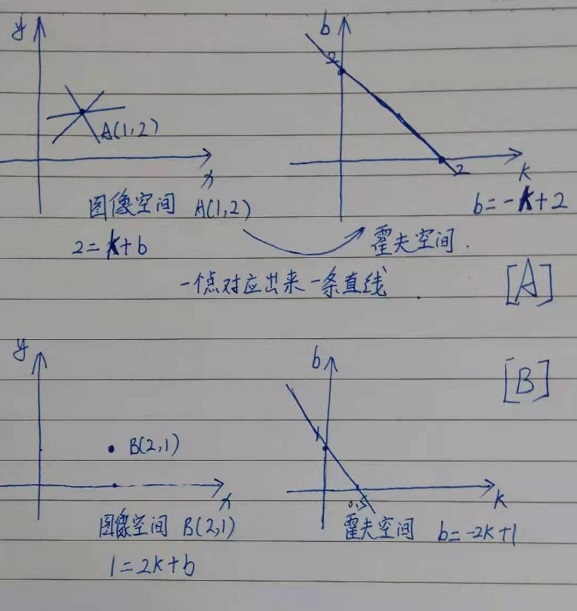 y
b
2
A(1,2)
x
2
k
图像空间 A(1,2)
b=-k+2
2=k+b
霍夫空间.
一个点对应出来一条直线
[A]
y
b
[B]
1
B(2,1)
x
0.5
k
图像空间 B(2,1)
霍夫空间 b=-2k+1
1=2k+b